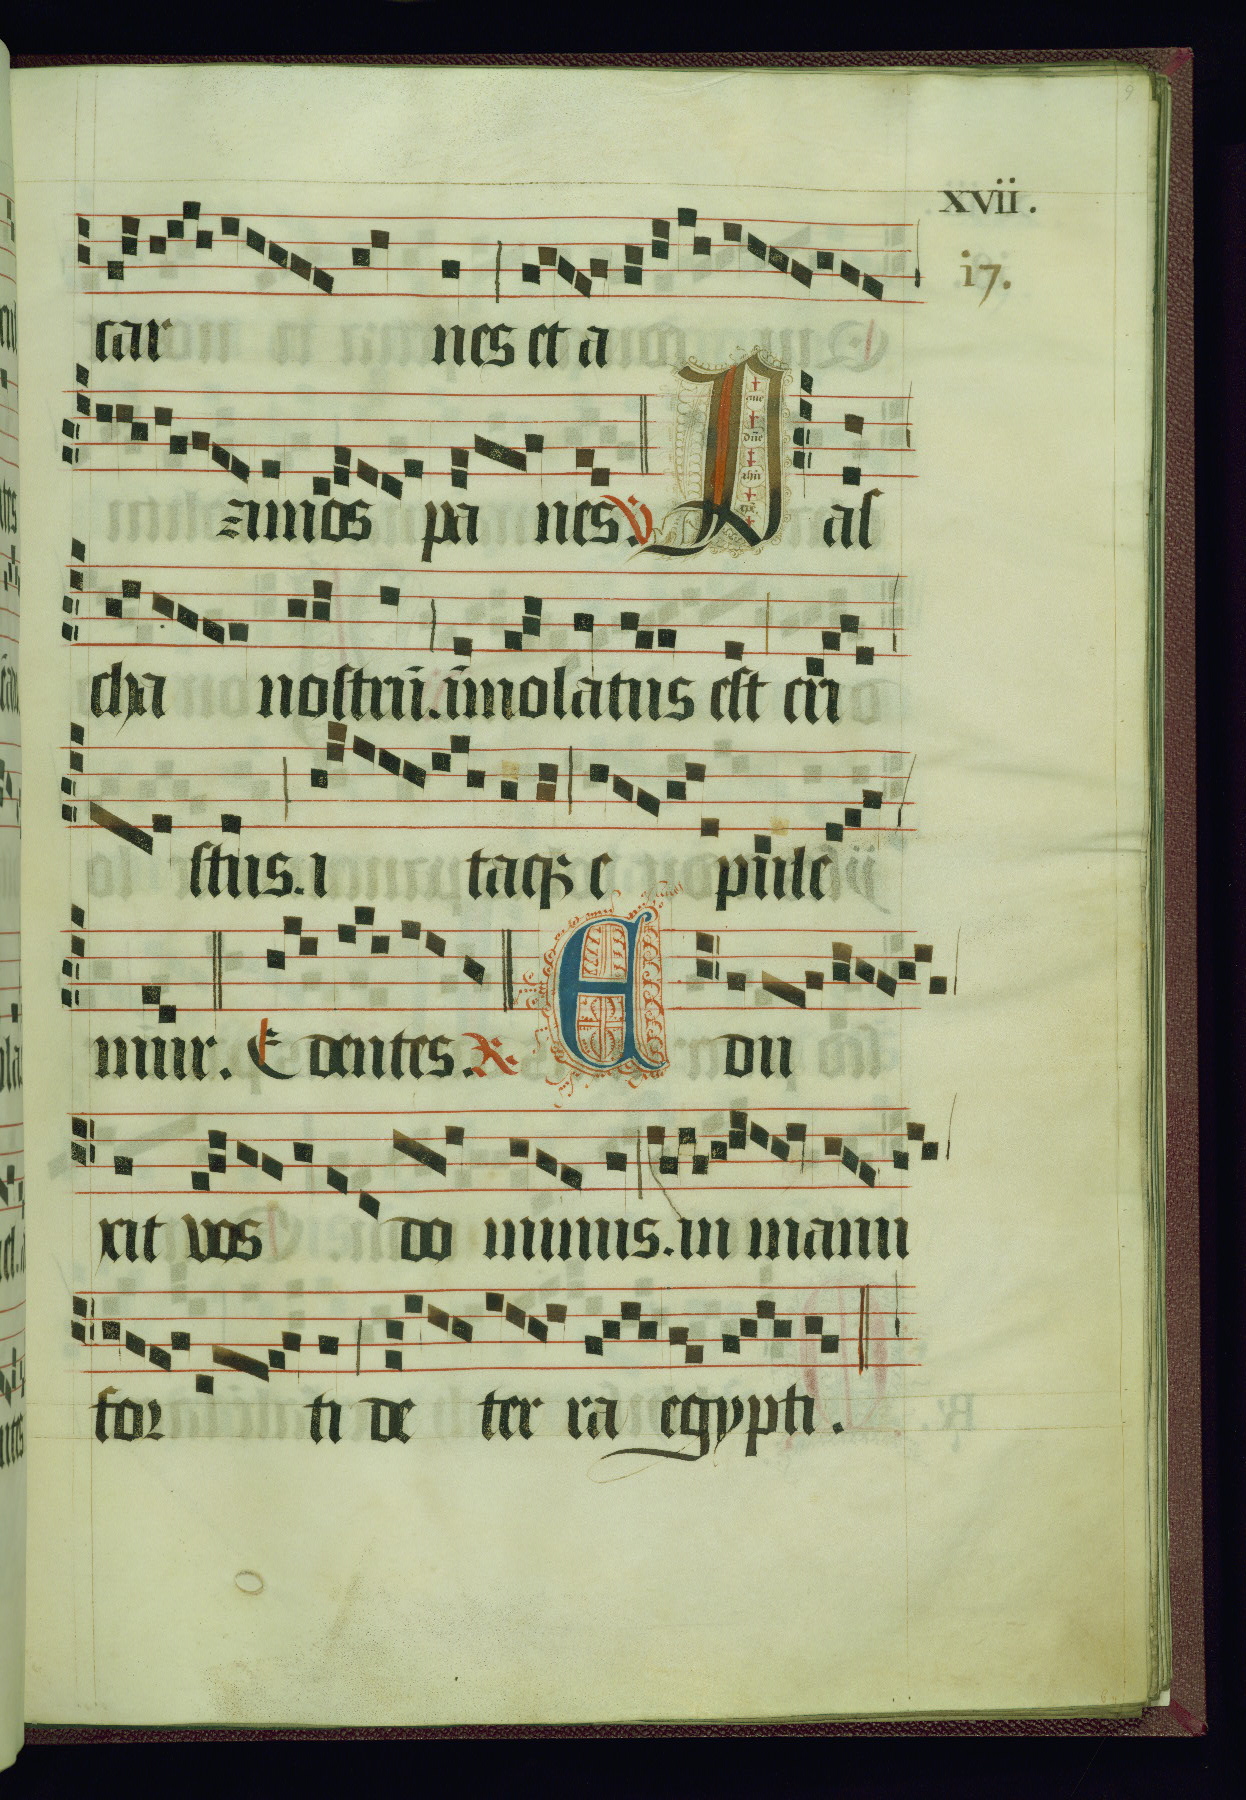 xvii.
i7.
car nes et a
zimos pa nes. V P al
cha nostrū. īmolatus est cri
stus. i taqȝ e pule
mur. E dentes. R. E du
xit vos do minus. in manu
for ti de ter ra egypti.